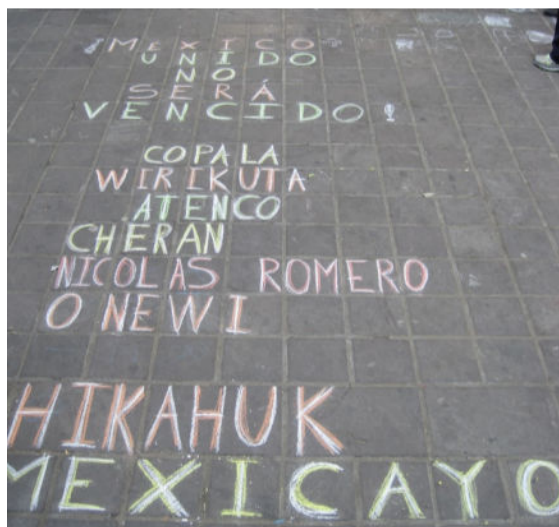 ¡MEXICO
UNIDO
NO
SERÁ
VENCIDO!
COPALA
WIRIKUTA
ATENCO
CHERAN
NICOLAS ROMERO
ONEWI
HIKAHUK
MEXICAYO